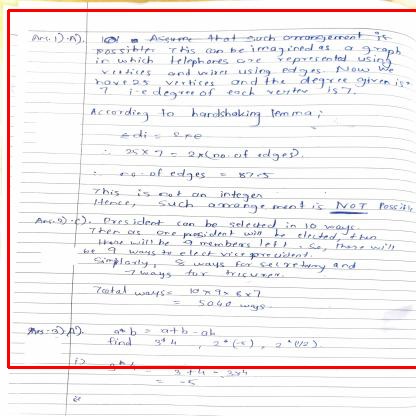 Ans.1) A). Assume that such arrangement is
possible. This can be imagined as a graph
in which telephones are represented using
vertices and wires using edges. Now we
have 25 vertices and the degree given is
7 i.e degree of each vertex is 7.
According to handshaking lemma;
Σdi = 2×e
∴ 25×7 = 2×(no. of edges).
∴ no. of edges = 87.5
This is not an integer
Hence, such arrangement is NOT Possible
Ans.2) c). President can be selected in 10 ways.
Then as one president will be elected, then
there will be 9 members left. So, there will
be 9 ways to elect vice president.
Similarly, 8 ways for secretary and
7 ways for
Total ways = 10×9×8×7
= 5040 ways.
Ans-3) A). a*b = a+b-ab
find 3*4, 2*(-5), 2*(1/2).
i) 3*4 = 3+4-3×4
= -5